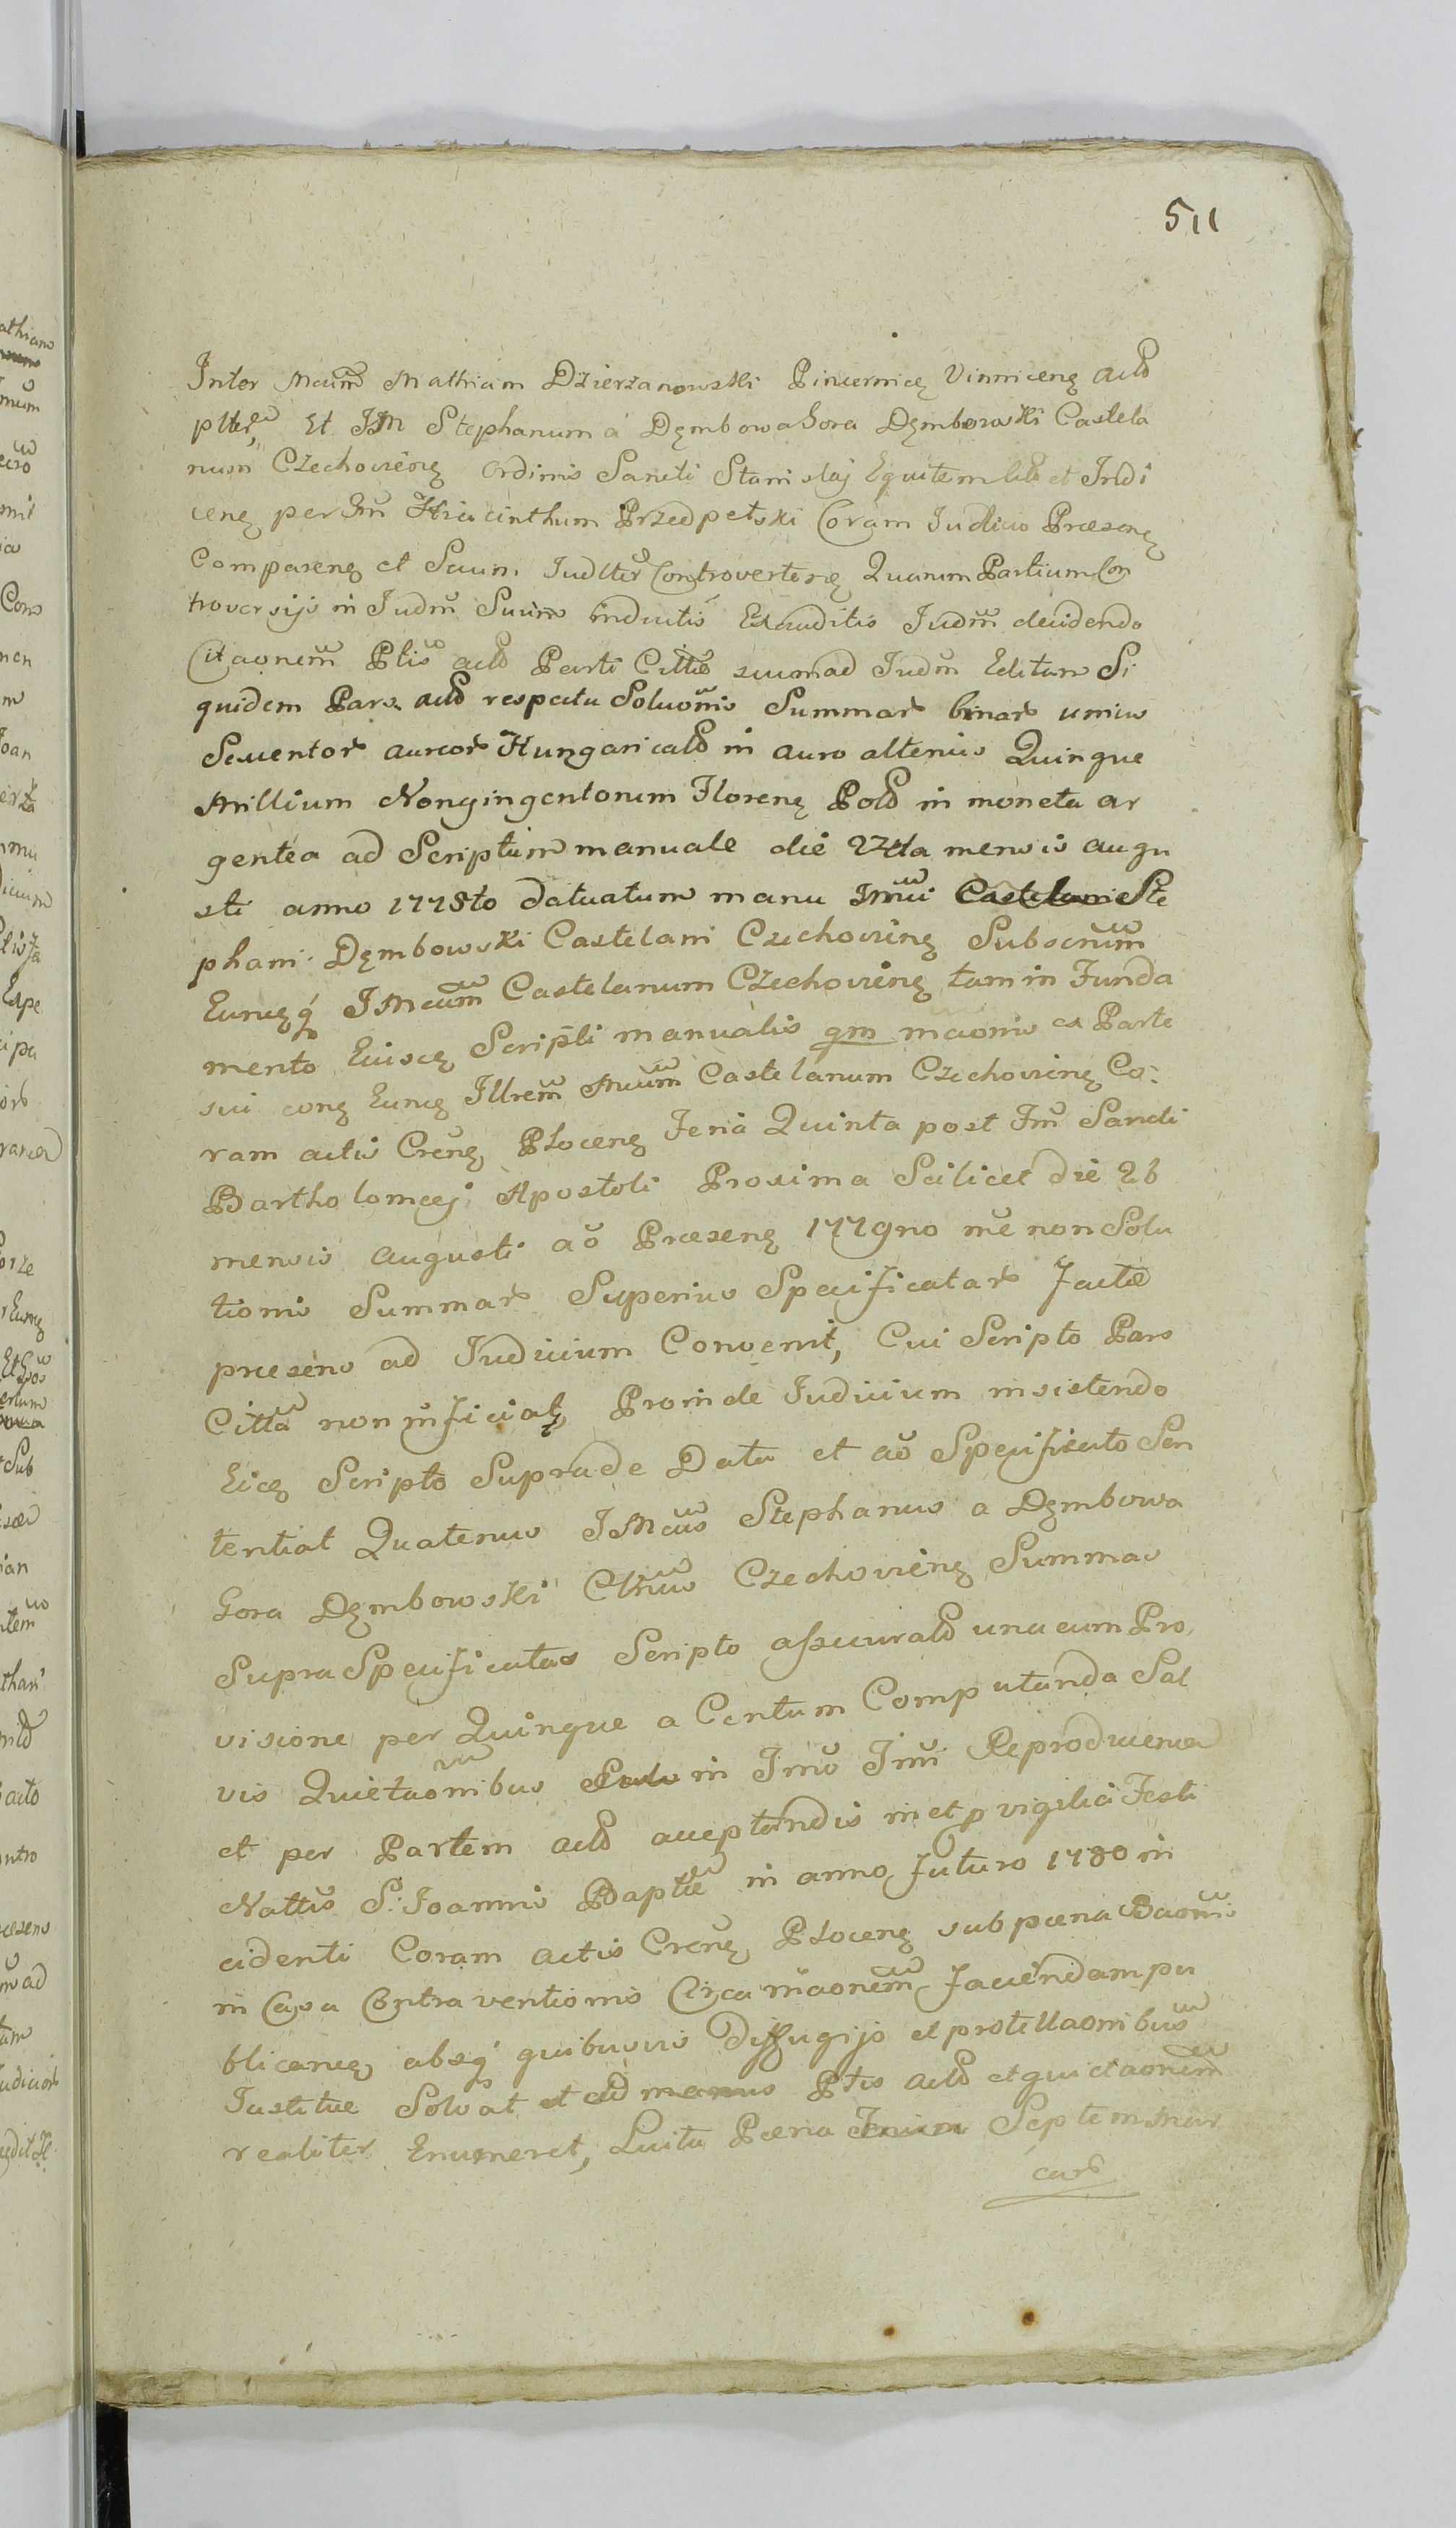 511
Inter Mcum Mathiam Dzierzanowski Pincernicę Vinnicenę act
plter, Et JM Stephanum á Dęmbowagora Dęmbowski Castela
num Czechovienę Ordinis Sancti Stanislaj Equitem et Indi
cenę per Hiacinthum Przedpełski Coram Judicio Præsenę
Comparenę et Secum Judlter Controvertenę Quarum Partium Con
troversijs in Judm Suum inductis Exauditis Judm decidendo
Citaonem Ptis act Parti Cittæ suum ad Judm Editam Si
quidem Pars act respectu Soluonis Summar binar unius
Sexcentor aureor Hungaricald in auro altenius Quinque
Millium Nongingentorum Florenę Pold in moneta ar
gentea ad Scriptum manuale die 27ma mensis augu
sti anno 1778to datuatum manu Jmi Ste
phani Dęmbowski Castelani Czechovienę Subscrium
Eumęq JMcum Castelanum Czechovienę tam in Funda
mento Eiuscę Scripti manualis qm maonis ex Parte
sui conę Eumę Illrem Mcum Castelanum Czechovienę Co:
ram actis Crenę Płocenę Feria Quinta post Fm Sancti
Bartholomæj Apostoli Proxima Scilicet die 26
mensis augusti ao Præsenę 1779no me non Solu
tionis Summar Superius Specificatar Factæ
præsens ad Judicium Convenit, Cui Scripto Pars
Citta non inficiat, Proinde Judicium insistendo
Eicę Scripto Suprade Data et ao Specificato Sen
tentiat Quatenus JMcus Stephanus a Dęmbowa
Gora Dęmbowski Cltnus Czechovienę Summas
Supra Specificatas Scripto assecurald una cum Pro,
visione per Quinque a Centum Computanda Sal
vis Quietaonibus in Jmo Jmi Reproducend
et per Partem act acceptandis in et p vigilia Festi
Nattis S: Joannis Baptæ in anno Futuro 1780 in
cidenti Coram actis Crenę Płocenę sub pœna Baonis
in Casu Contraventionis Circa maonem Faciendam pu
blicanę absq quibusvis Diffugijs et protellaonibus
Justitiæ Solvat et ad manus Ptis act et quietaonem
realiter Enumeret, Luita Pœna Septem Mar
card